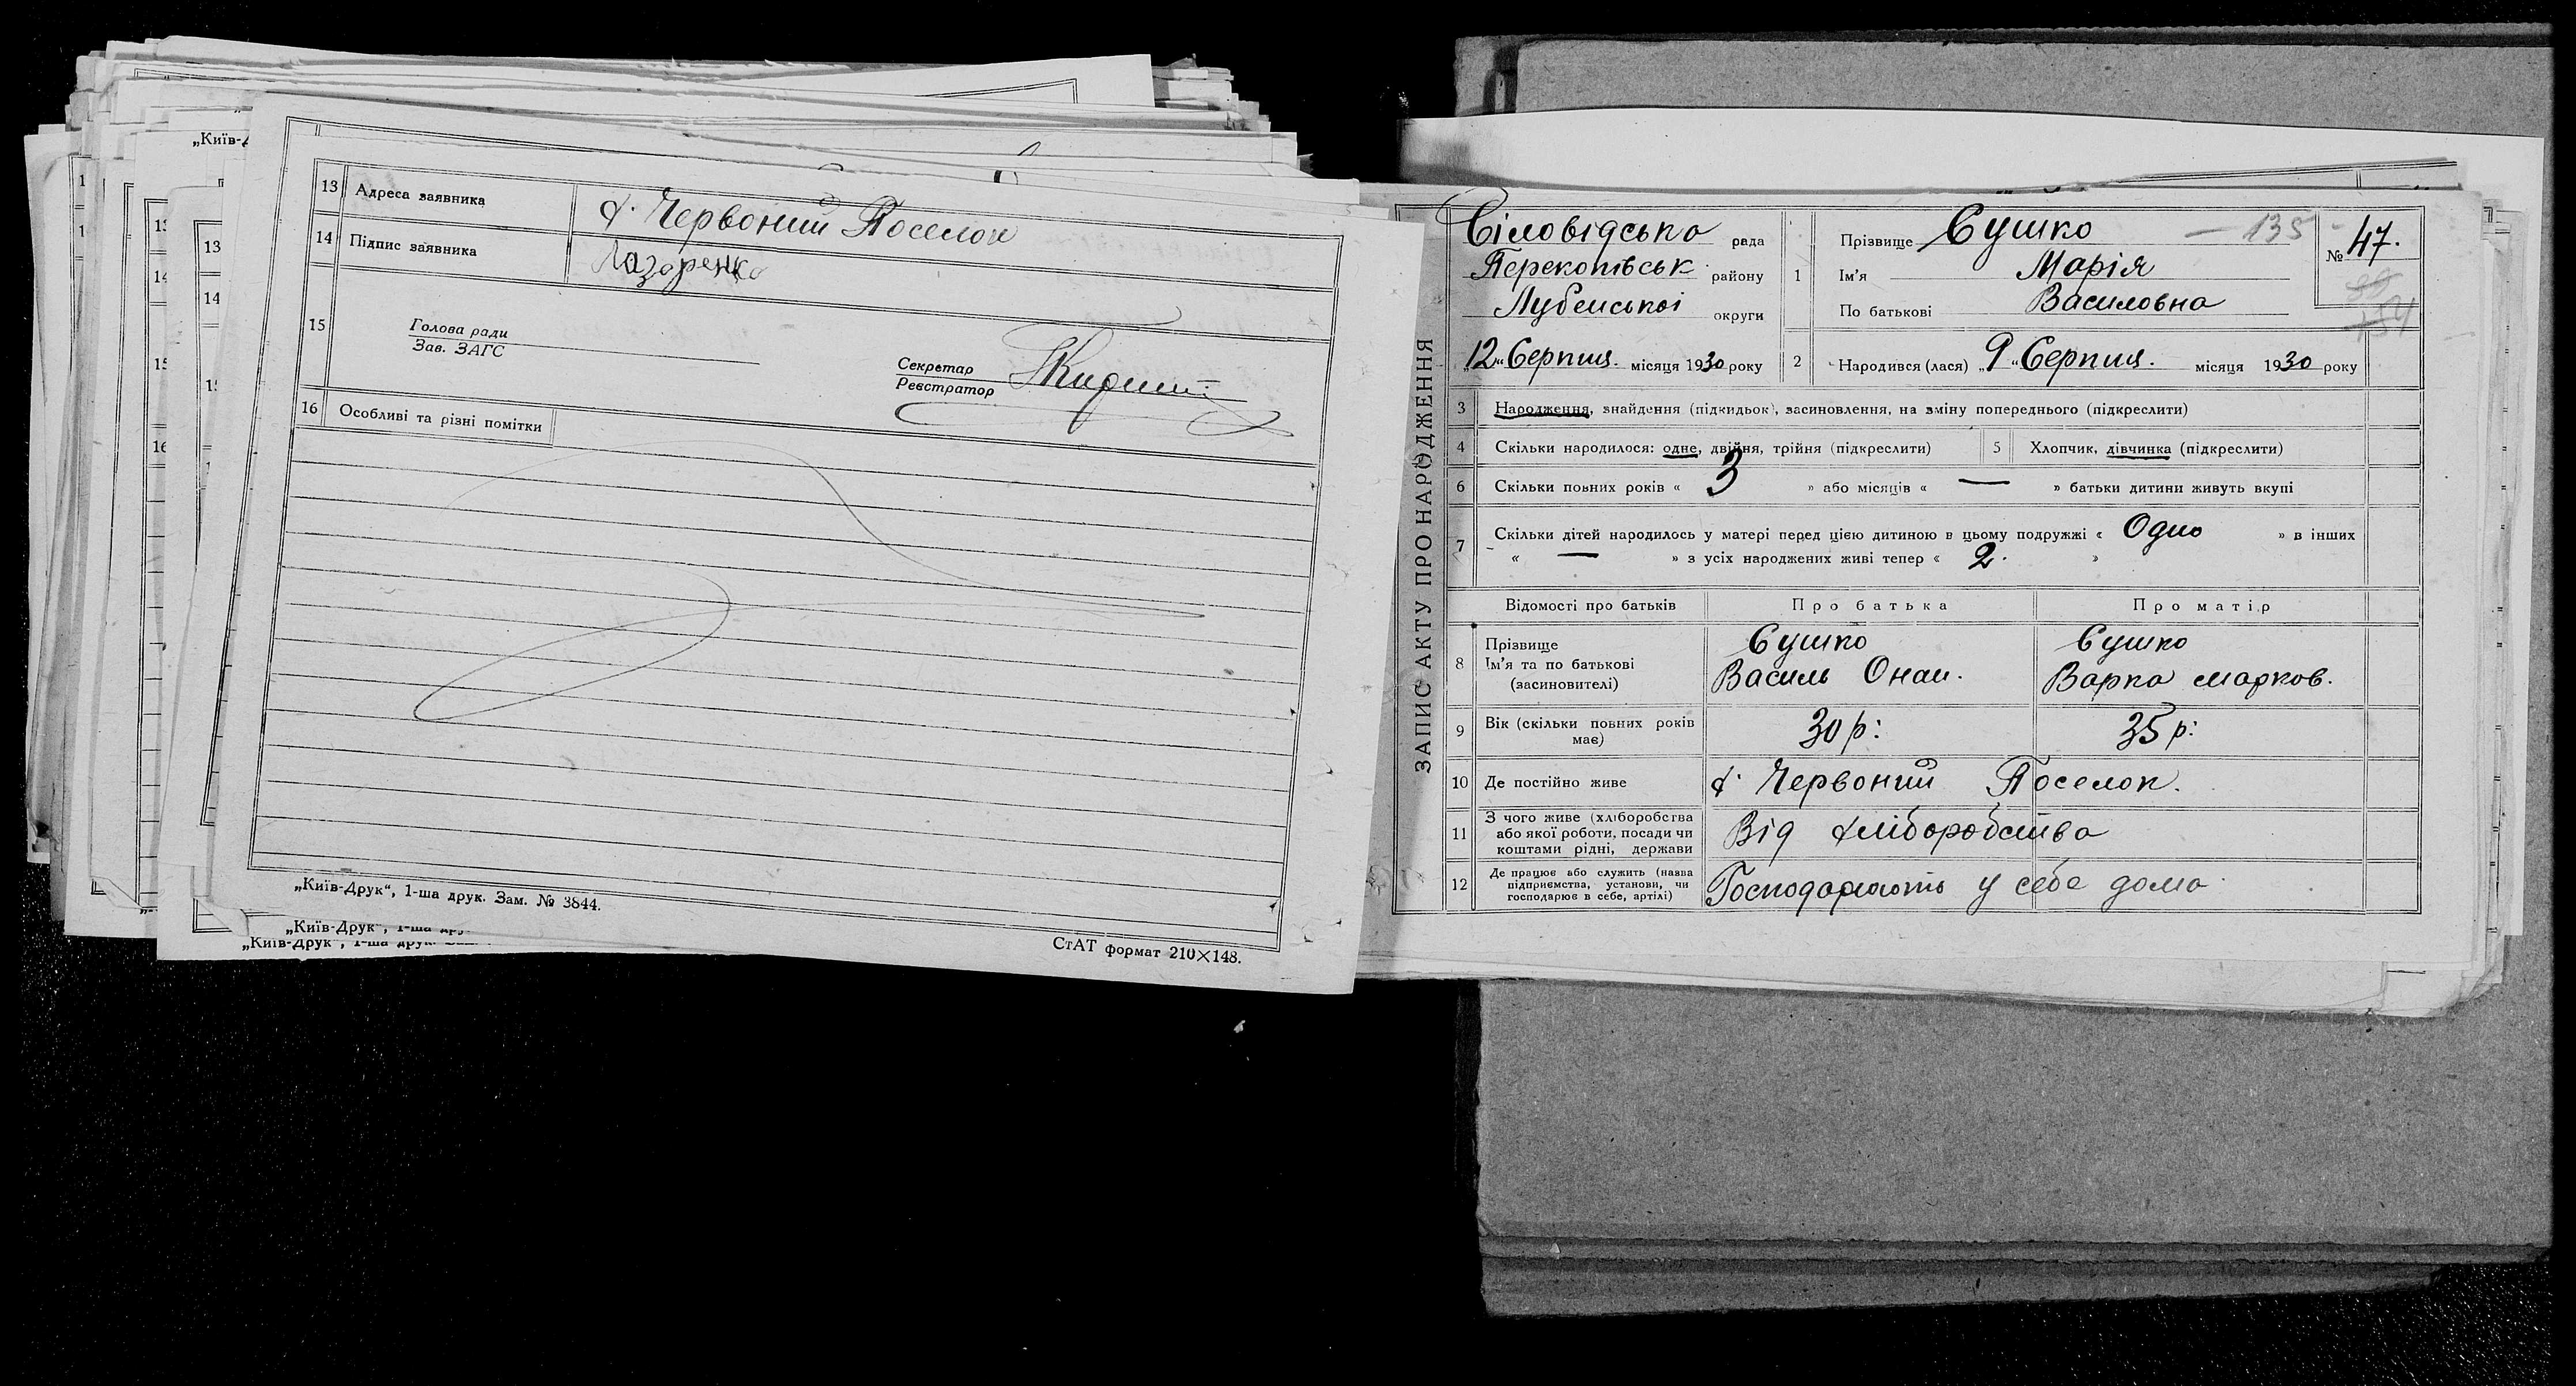 „Київ-Д
13 Адреса заявника х. Червоний Поселок
14 Підпис заявника Лазаренко
15 Голова ради
Зав. ЗАГС
Секретар
Реєстратор
16 Особливі та різні помітки
„Київ-Друк“, 1-ша друк. Зам. № 3844.
СтАТ формат 210×148.
„Київ-Друк“, 1-ша дру
„Київ-Друк“, 1-ша друк.
ЗАПИС АКТУ ПРО НАРОДЖЕННЯ
Біловідська рада
Перекопівськ. району
Лубенської округи
12 „ Серпня. місяця 1930 року
1 Прізвище Сушко — 135
Ім'я Марія
По батькові Василовна
№ 47.
2 Народився (лася) „9“ Серпня. місяця 1930 року
3 Народження, знайдення (підкидьок), засиновлення, на зміну попереднього (підкреслити)
4 Скільки народилося: одне, двійня, трійня (підкреслити) 5 Хлопчик, дівчинка (підкреслити)
6 Скільки повних років « 3 » або місяців « — » батьки дитини живуть вкупі
7 Скільки дітей народилось у матері перед цією дитиною в цьому подружжі « Одно » в інших
« — » з усіх народжених живі тепер « 2. »
Відомості про батьків Про батька Про матір
8 Прізвище Сушко Сушко
Ім'я та по батькові Василь Онан. Варка Марков.
(засиновителі)
9 Вік (скільки повних років має) 30 р: 35 р:
10 Де постійно живе х. Червоний Поселок.
11 З чого живе (хліборобства
або якої роботи, посади чи Від хліборобства
коштами рідні, держави
12 Де працює або служить (назва
підприємства, установи, чи Господарюють у себе дома
господарює в себе, артілі)